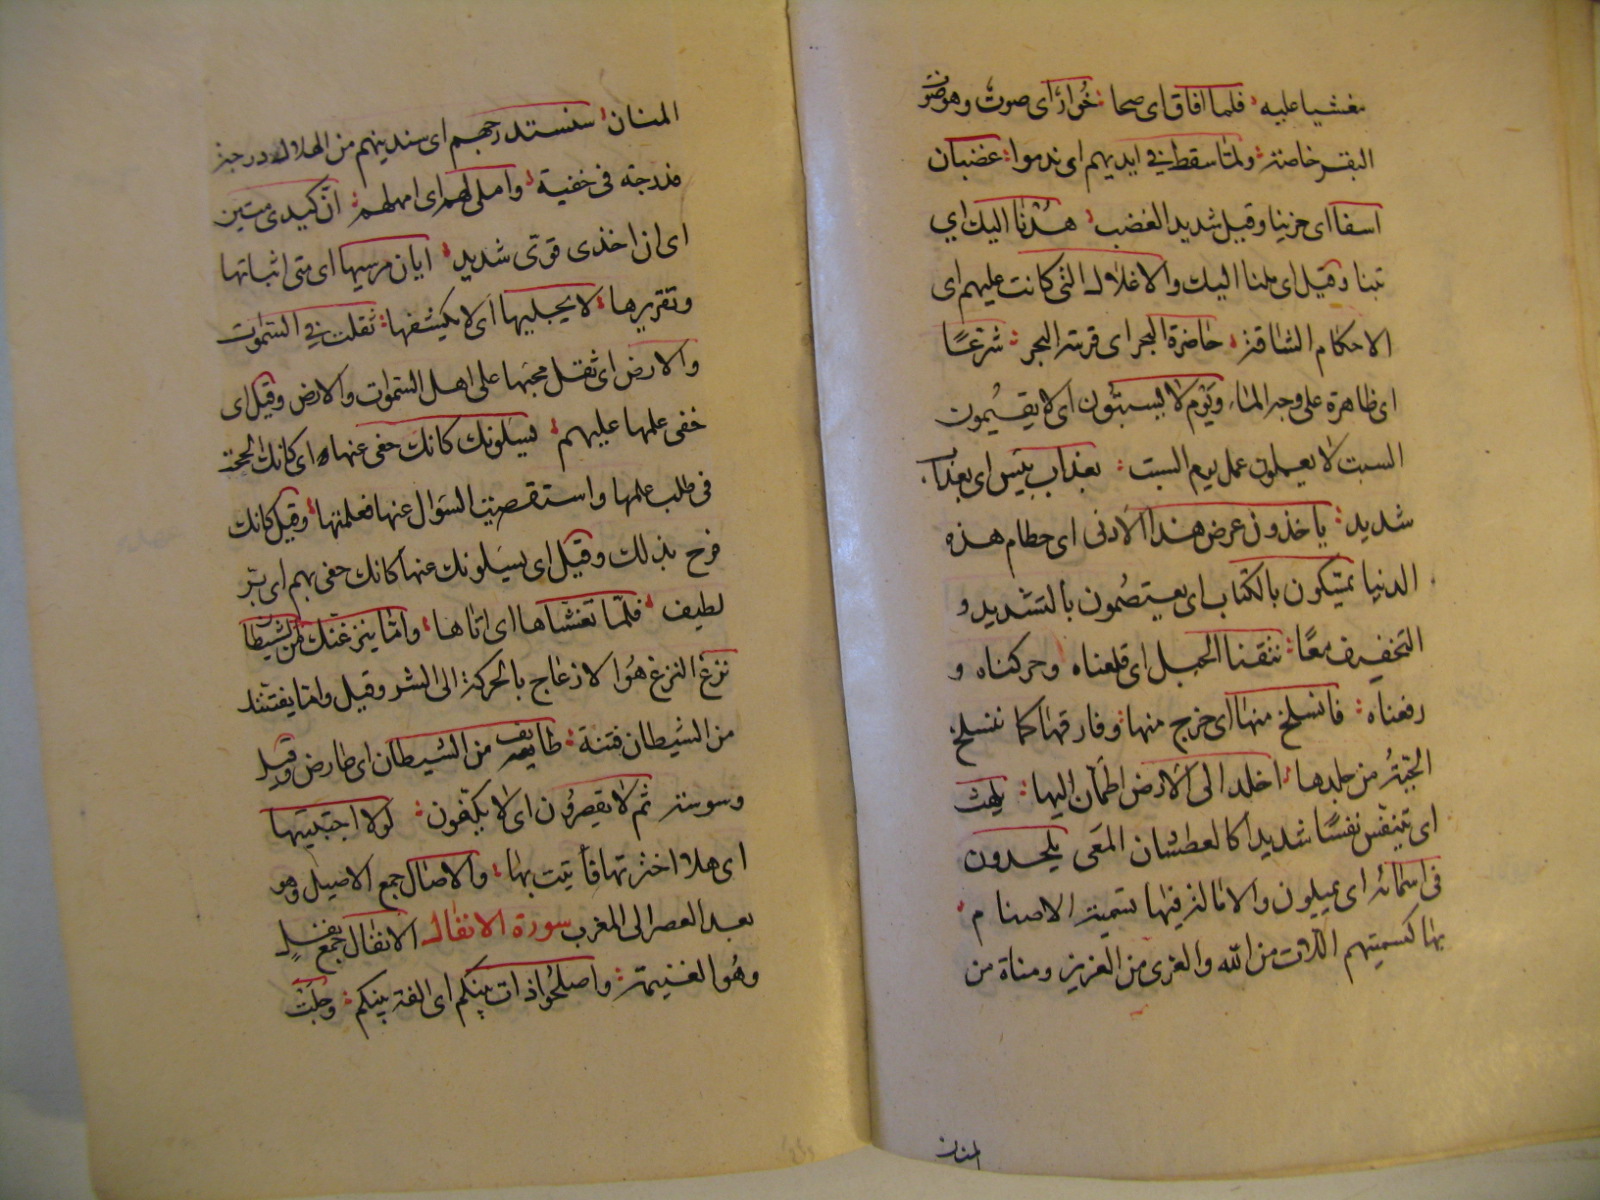 مغشيا عليه فلما افاق اى صحا خُوار اى صوت وهو صوت
البقر خاصة ولما سقط فى ايديهم اى ندموا غضبان
اسفا اى حزينا وقيل شديد الغضب هُدنا اليك اي
تبنا وقيل اى ملنا اليك والاغلال التى كانت عليهم اى
الاحكام الشاقة حاضرة البحر اى قرية البحر شرعًا
اى ظاهرة على وجه الماء ويَوْم لا يسبتون اى لا يقيمون
السبت لا يعملون عمل يوم السبت بعذاب بئيس اى بعذاب
شديد ياخذون عرض هذا الادنى اى حطام هذه
الدنيا يمسّكون بالكتاب اى يعتصمون بالتشديد و
التخفيف معًا نتقنا الجبل اى قلعناه وحركناه و
رفعناه فانسلخ منها اى خرج منها وفارقها كما تنسلخ
الحيّة من جلدها اخلد الى الارض اطمان اليها يلهث
اى يتنفس نفسًا شديدا كالعطشان المعَى يلحدون
فى اسمائه اى يميلون والامالة فيها تسمية الاصنام
بها كتسميتهم اللات من الله والعزى من العزيز ومناة من
المنان
المنان سنستدرجهم اى سندينهم من الهلاك درجة
فدرجة فى خفية واملى لهم اى امهلهم انّ كيدى متين
اى ان اخذى قوىّ شديد ايان مرسيها اى متى اثباتها
وتقريرها لا يجليها اى لا يكشفها ثقلت فى السموات
والارض اى ثقل مجيها على اهل السموات والارض وقيل اى
خفى علمها عليهم يسئلونك كانك حفى عنها اى كانك الححت
فى طلب علمها واستقصيت السؤال عنها فعلمتها وقيل كانك
فرح بذلك وقيل اى يسئلونك عنها كانك حفى بهم اى بر
لطيف فلمّا تغشاها اى اتاها وامّا ينزغنك من الشيطان
نزغ النزغ هُوا لازعاج بالحركة الى الشر وقيل واما يفتننك
من الشيطان فتنة طايف من الشيطان اى عارض وقيل
وسوسة ثم لا يقصرُون اى لا يكفّون لولا اجتبيتها
اى هلا اخترتها فأتيت بها والاصال جمع الاصيل وهو
بعد العصر الى المغرب سورة الانفال الانفال جمع نفل
وهُوا لغنيمة واصلحُوا ذات بينكم اى الفة بينكم وجلت